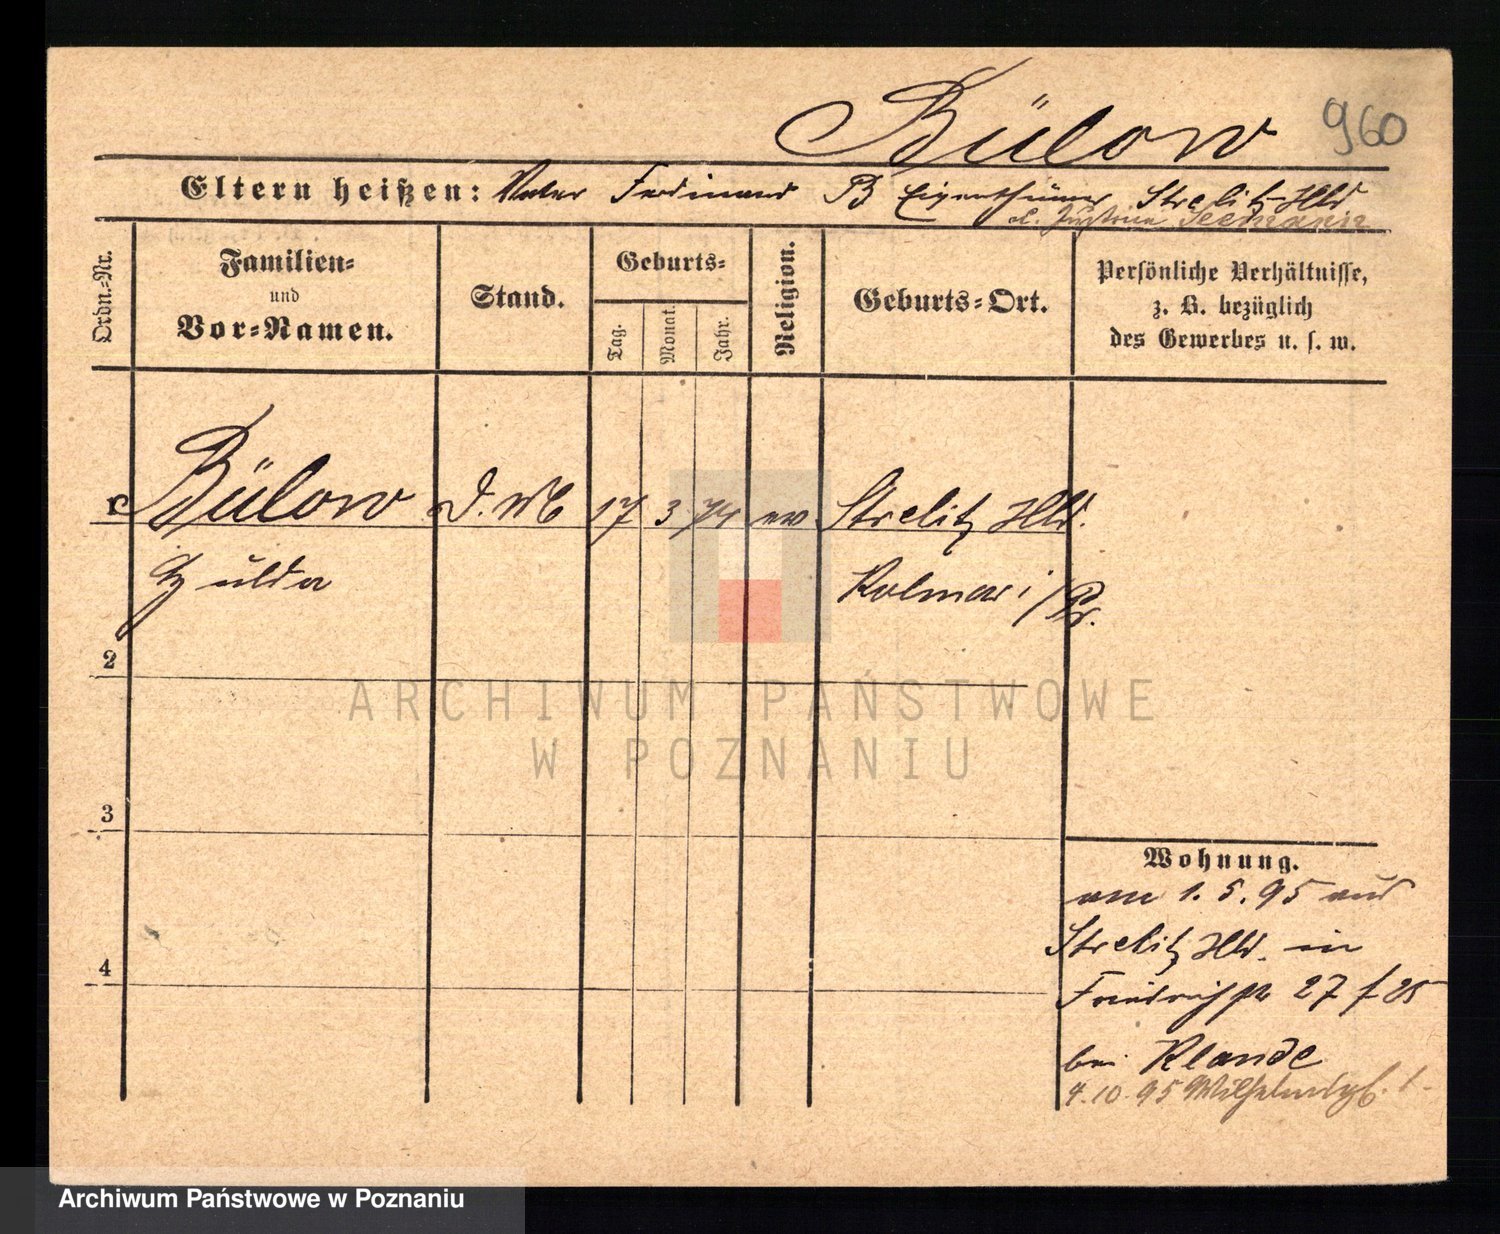 Bülow 960
Eltern heißen: Vater Ferdinand B Eigenthümer Strelitz Hld
u. Justine Seemann
Ordn.-Nr.
Familien-
und
Vor-Namen.
Stand.
Geburts-
Tag.
Monat.
Jahr.
Religion.
Geburts-Ort.
Persönliche Verhältnisse,
z. B. bezüglich
des Gewerbes u. s. w.
1 Bülow 17 3 74 ev Strelitz Hld.
Hulda Kolmar i/Pr.
2
3
4
Wohnung.
am 1. 5. 95 aus
Strelitz Hld. in
27
bei Klande
4.10.95
ARCHIWUM PAŃSTWOWE
W POZNANIU
Archiwum Państwowe w Poznaniu